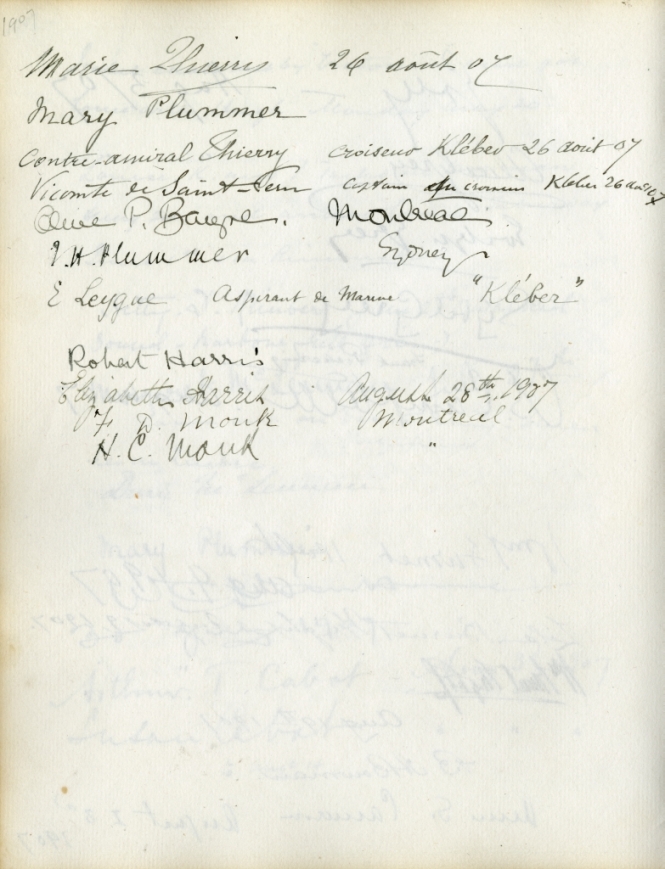 1907
Marie Thierry 26 août 07
Mary Plummer
Contre-amiral Thierry croiseur Kléber 26 août 07
Vicomte de Saint- Capitaine du croiseur Kléber 26 août 07
P. Montreal
J. H. Plummer Sydney
E Leygue Aspirant de Marine "Kléber"
Robert Harris
Elizabeth Harris August 28th, 1907
F. D. Monk Montreal
H. C. Monk "